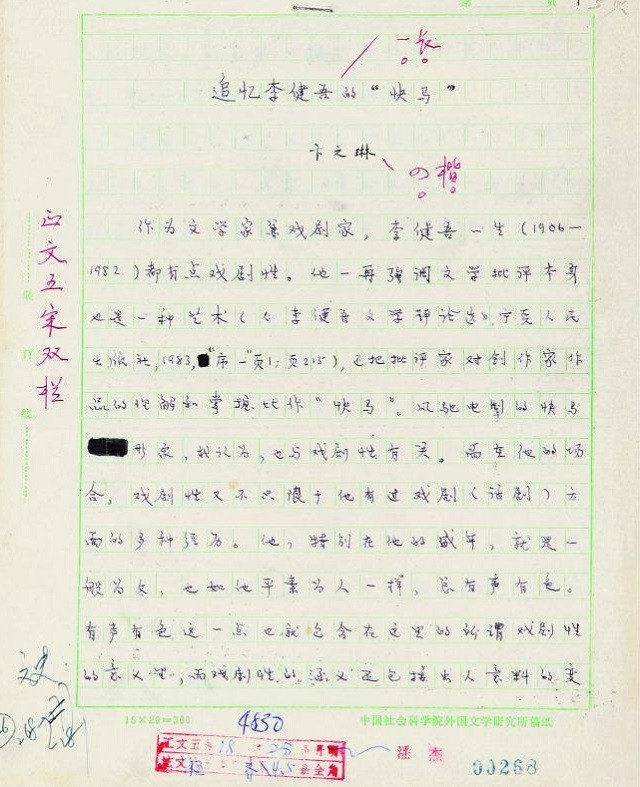 第 页
追忆李健吾的“快马”
卞之琳
④楷
正文五宋双栏
作为文学家兼戏剧家，李健吾一生（1906—
1982）都有点戏剧性。他一再强调文学批评本身
也是一种艺术（《李健吾文学评论选》，宁夏人民
出版社，1983，“序一”页1；页215），又把批评家对创作家作
品的理解和掌握比作“快马”。风驰电掣的快马
形象，我认为，也与戏剧性有关。而在他的场
合，戏剧性又不只限于他有过戏剧（话剧）方
面的多种经历。他，特别在他的盛年，就是一
般为文，也如他平素为人一样，总有声有色。
有声有色这一点也就包含在这里的所谓戏剧性
的意义里，而戏剧性的涵义还包括出人意料的变
装
订
线
15×20=300
4830
中国社会科学院外国文学研究所稿纸
潘杰
00268